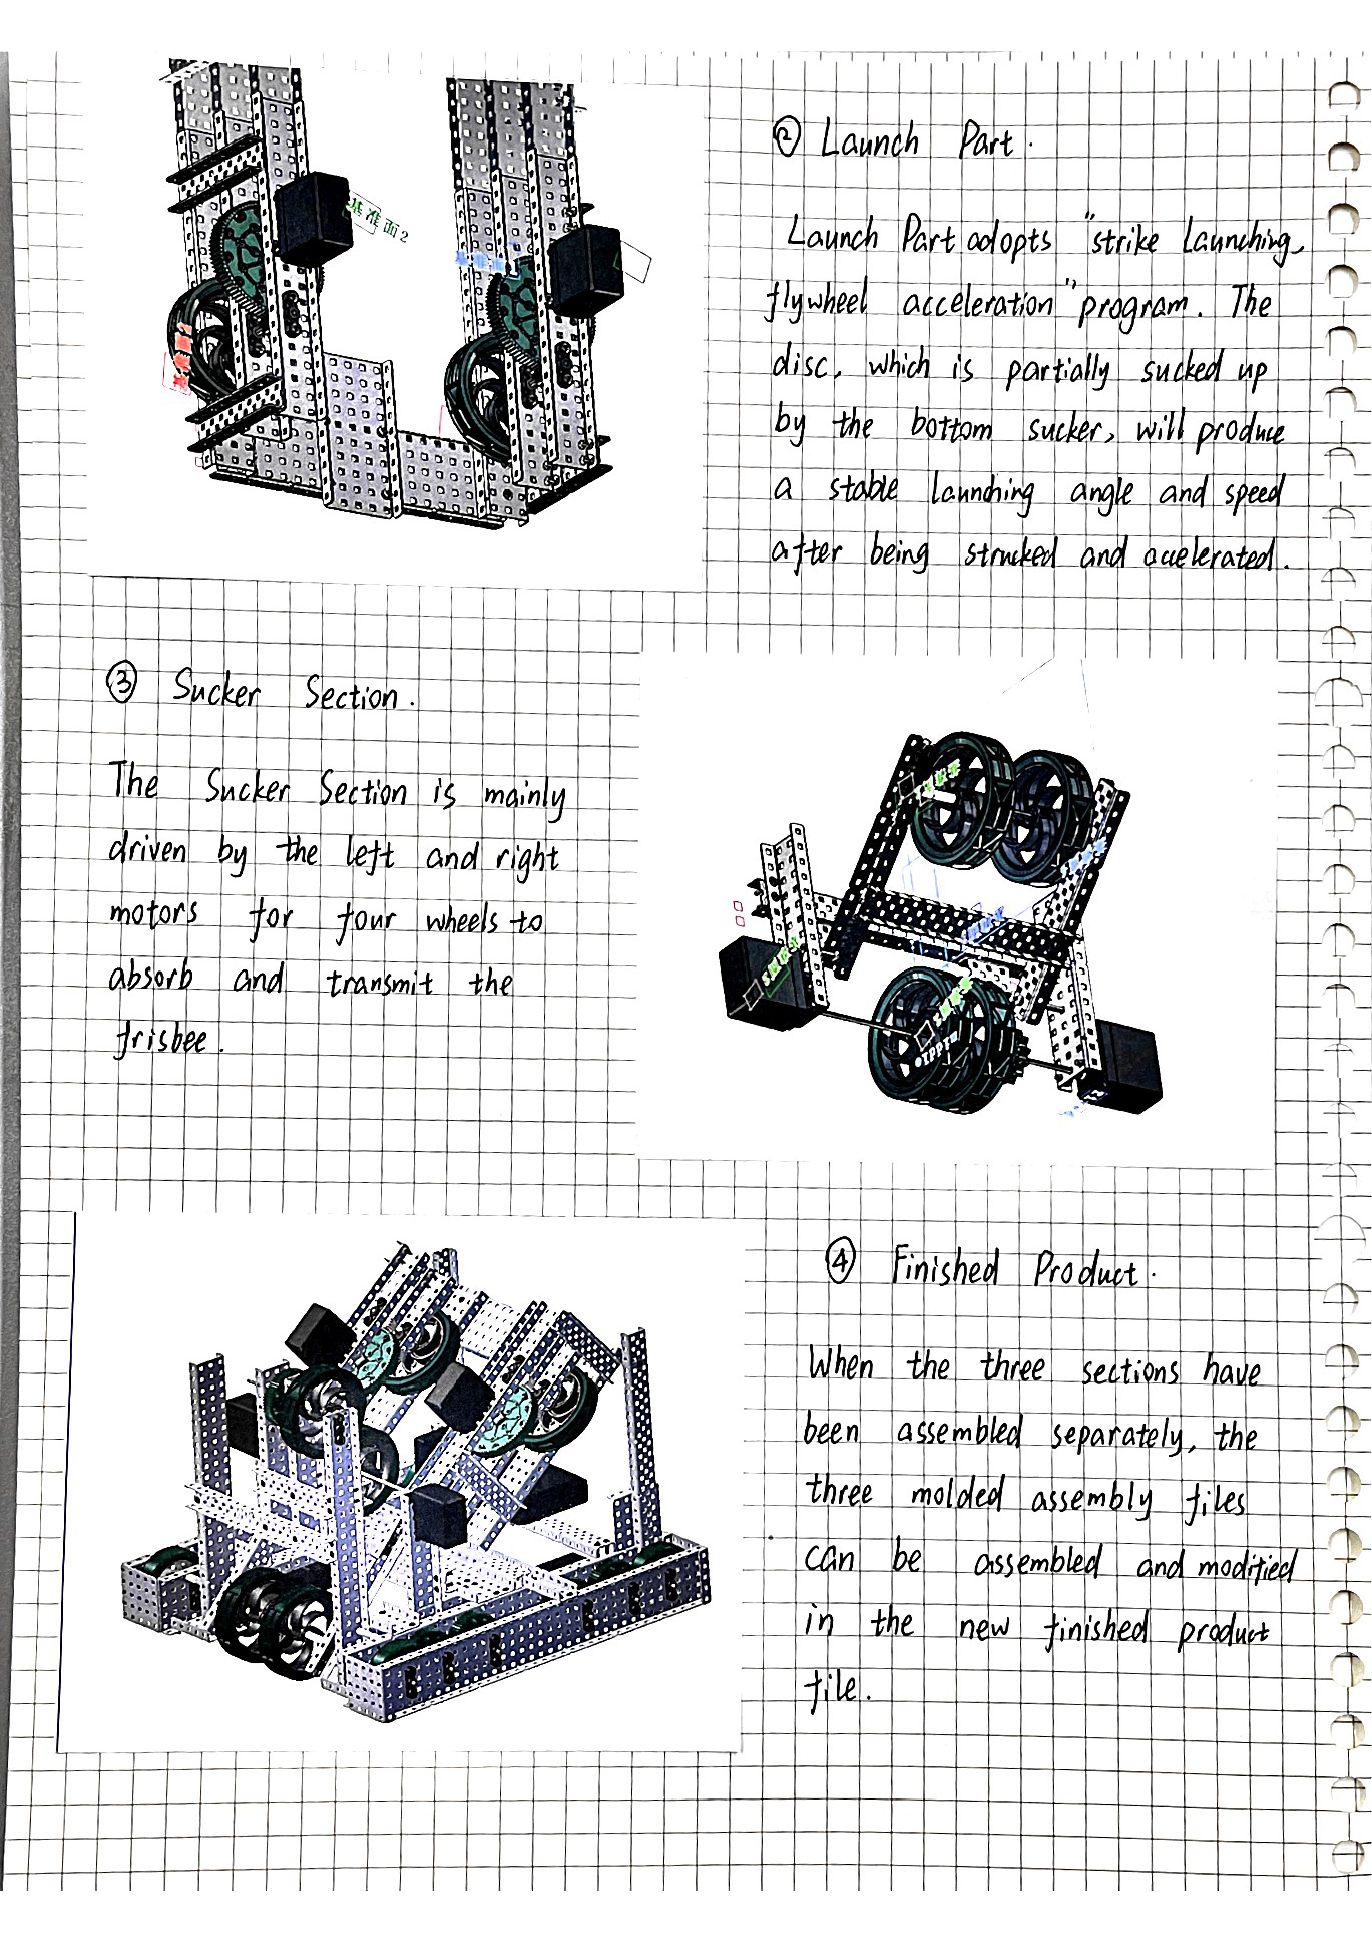 ② Launch Part.
Launch Part adopts "strike launching,
flywheel acceleration" program. The
disc, which is partially sucked up
by the bottom sucker, will produce
a stable launching angle and speed
after being strucked and accelerated.
基准面2
③ Sucker Section.
The Sucker Section is mainly
driven by the left and right
motors for four wheels to
absorb and transmit the
frisbee.
④ Finished Product.
When the three sections have
been assembled separately, the
three molded assembly files
can be assembled and modified
in the new finished product
file.